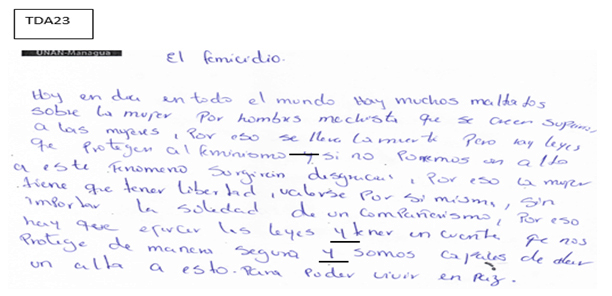 TDA23
UNAN-Managua
El femicidio.
Hoy en dia en todo el mundo Hay muchos maltatos
sobre la mujer Por hombres machista que se creen superior,
a las mujeres, Por eso se lleva la muerte Pero hay leyes
que Protegen al feminismo y si no Ponemos un alto
a este Fenomeno Surgirán desgracias, Por eso la mujer
tiene que tener libertad, valorse Por si misma, sin
importar la soledad de un compañerismo, Por eso
hay que ejercer las leyes y tener en cuenta que nos
Protige de manera segura y somos capases de dar
un alta a esto. Para Poder vivir en Paz.